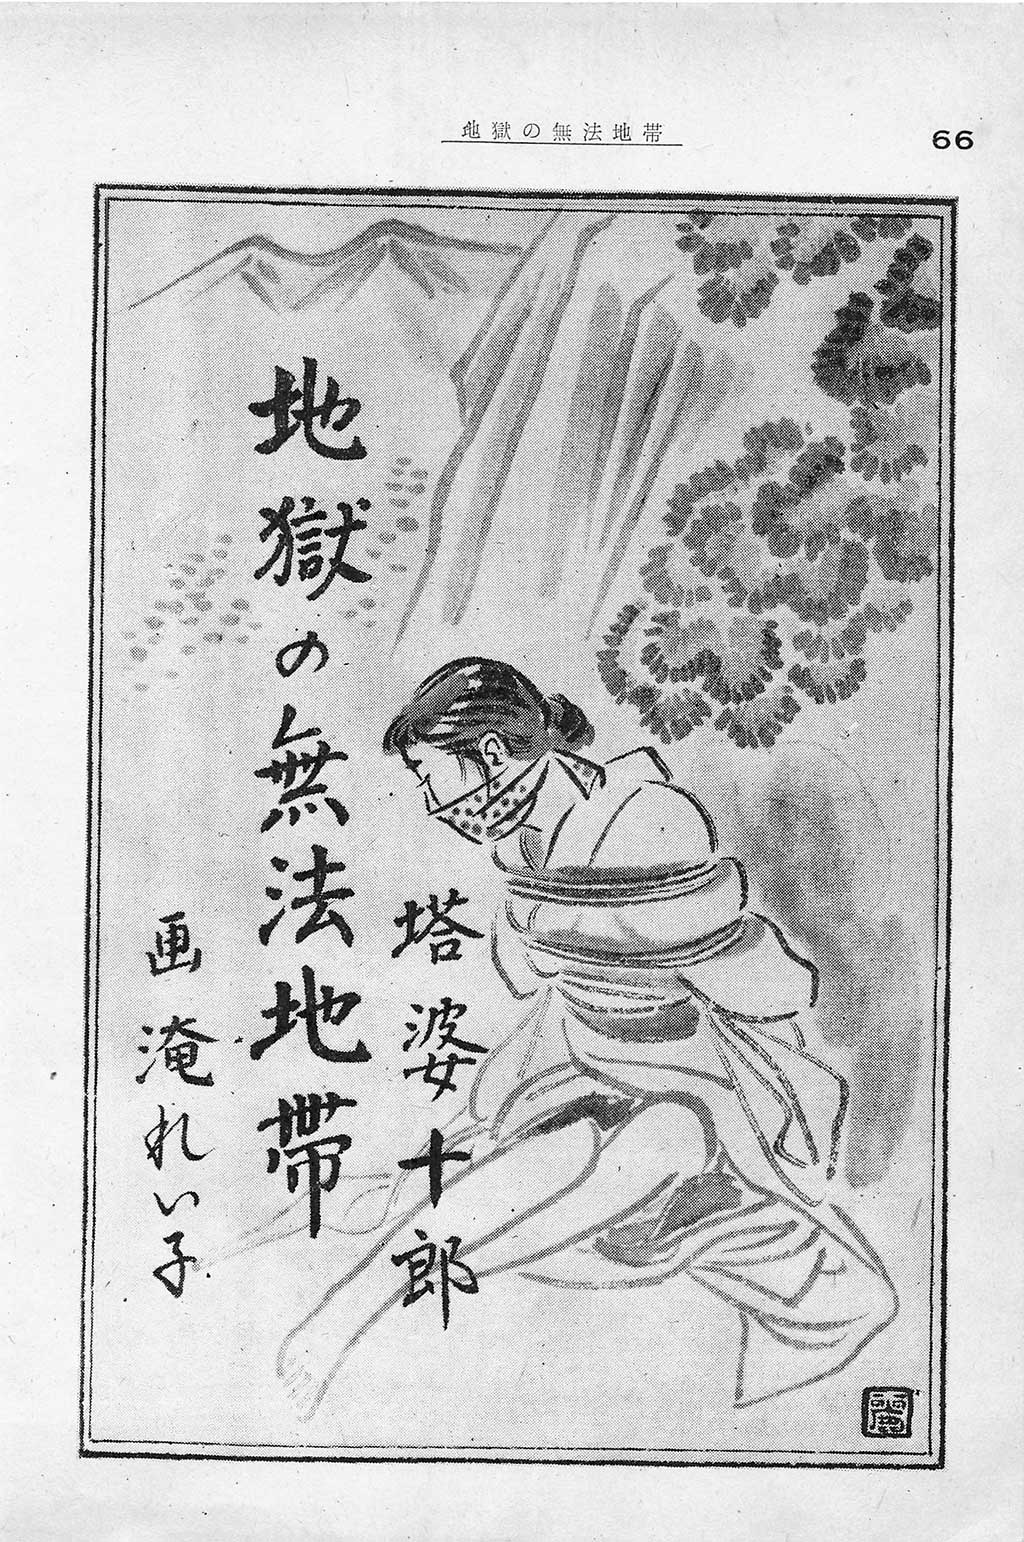 地獄の無法地帯
66
塔婆十郎
地獄の無法地帶
画 淹れい子